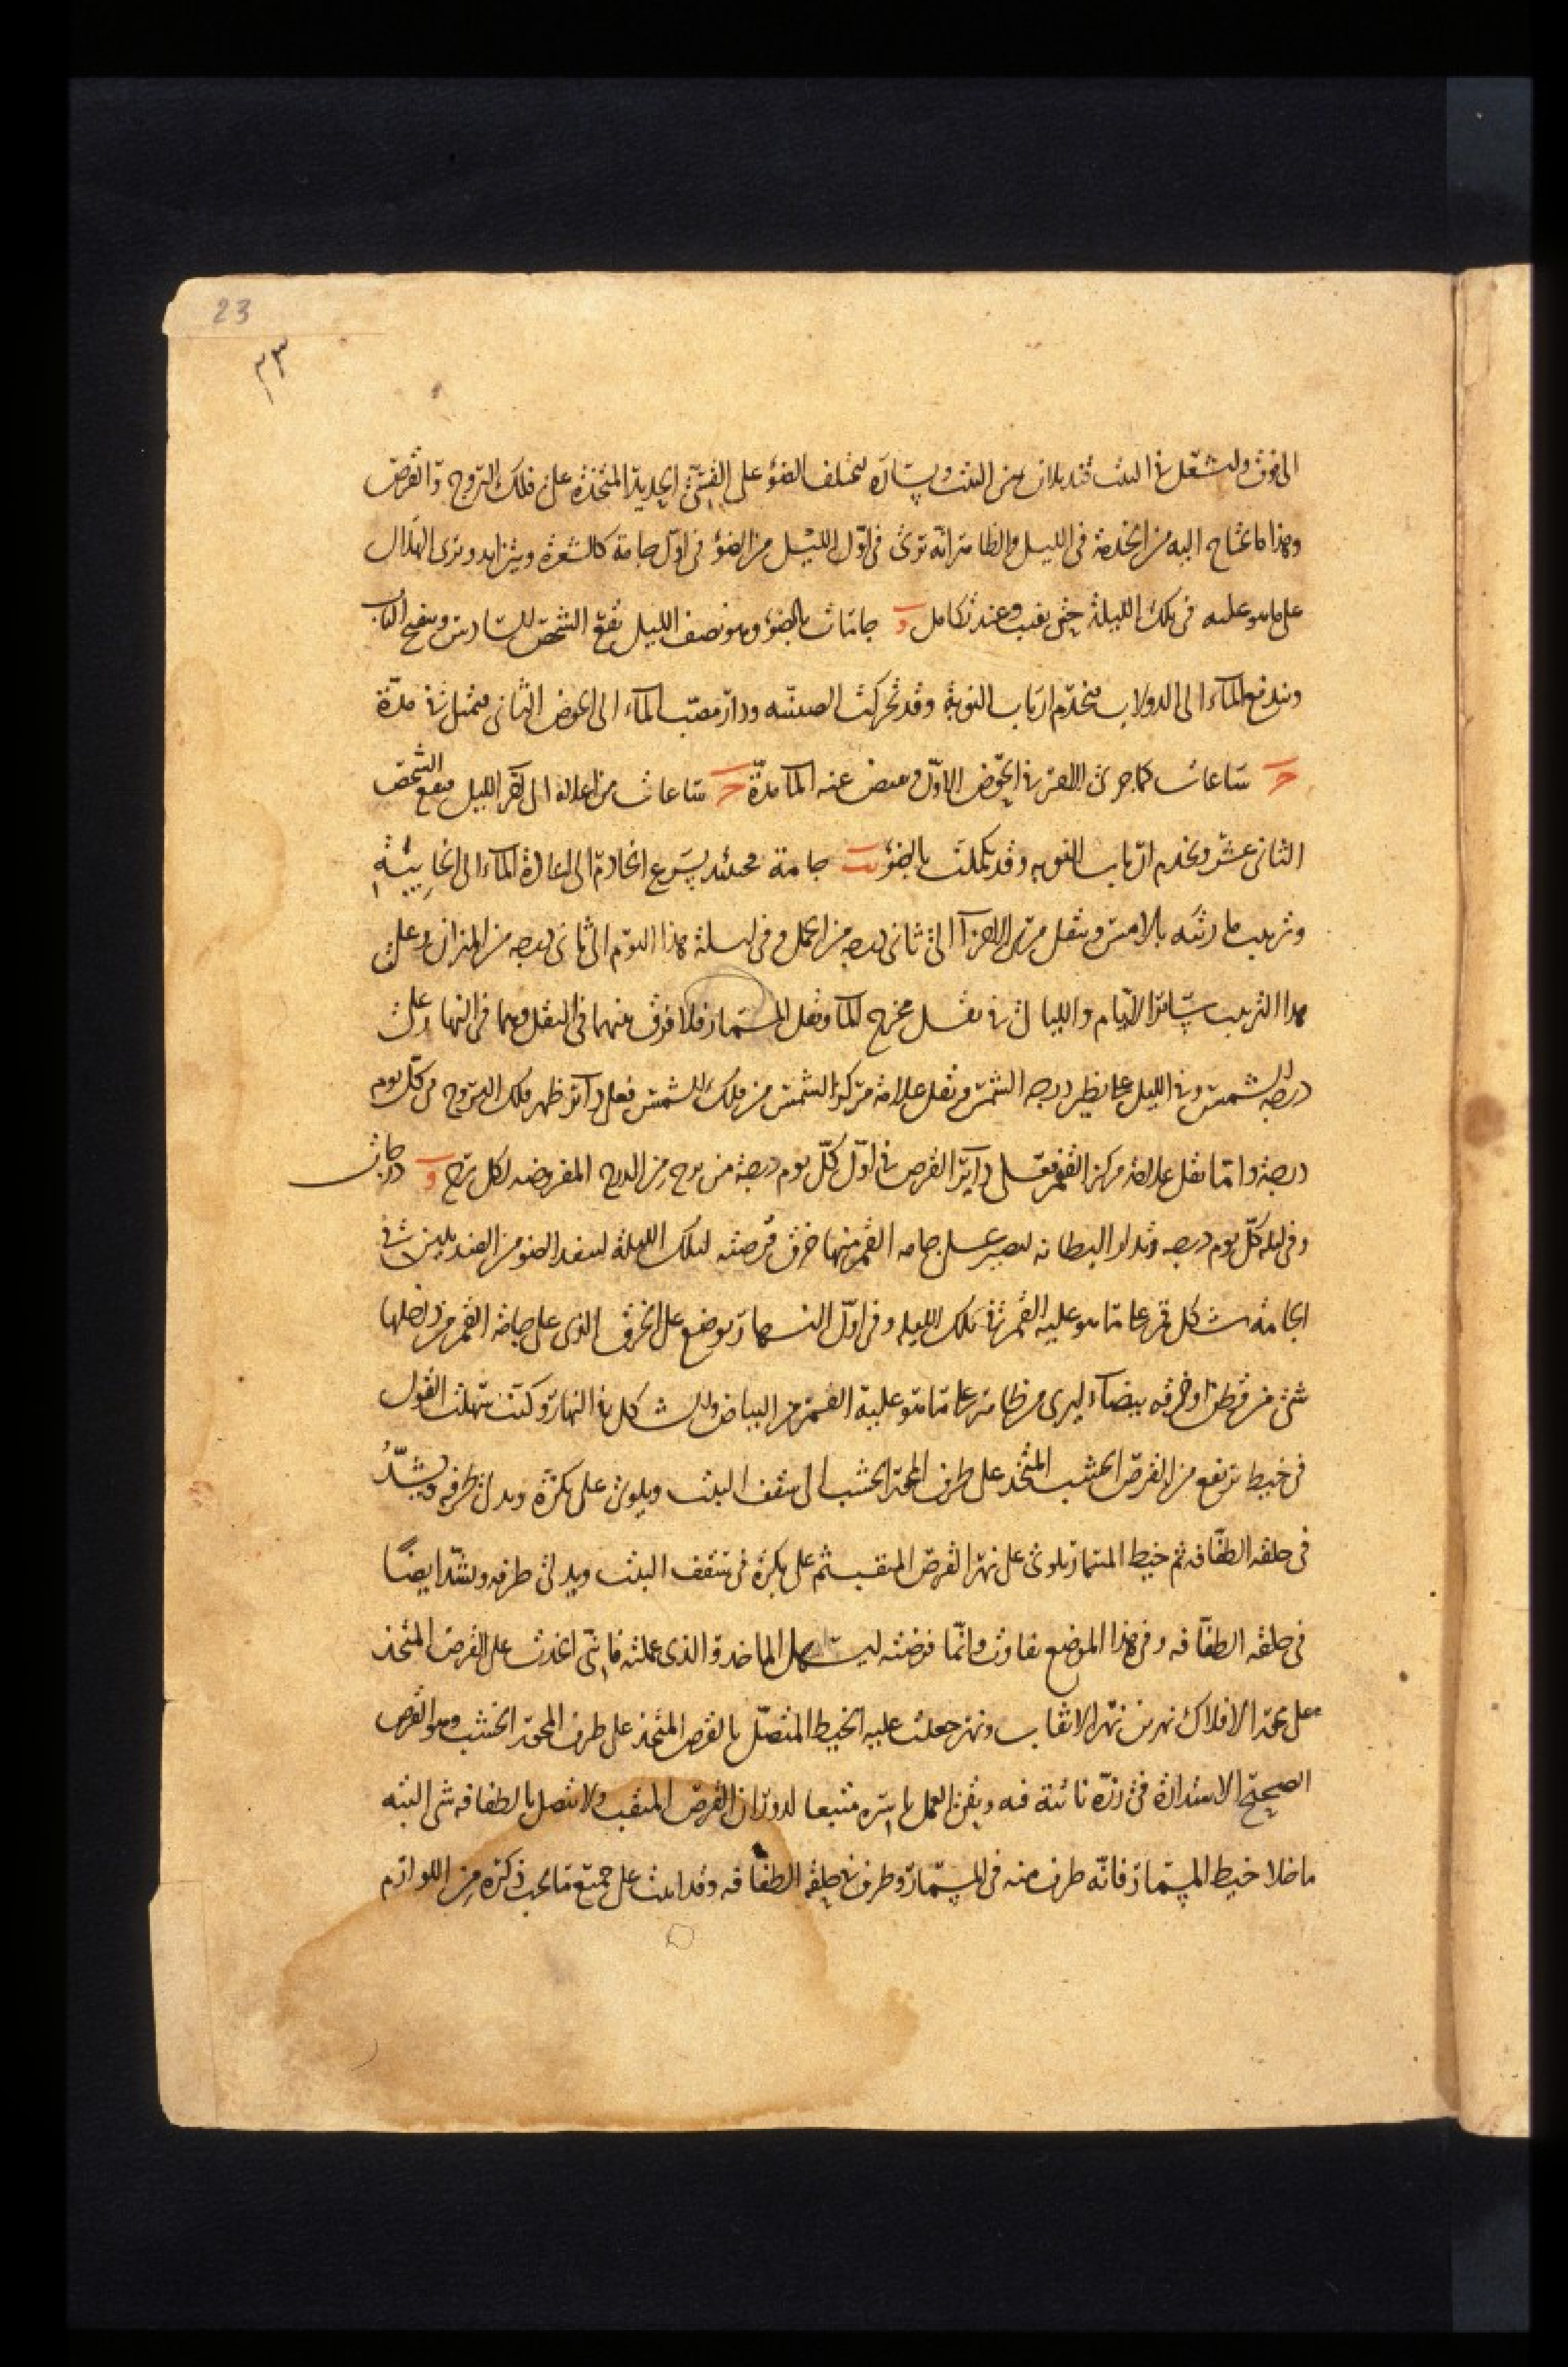 23
٢٣
الى فوق ولىشعل فى البىت قندىلان عن البىت وىساره لىختلف الضوء على القسى الحدىدىة المتخذة على فلك البروج والقرص
وهذا ما ىحتاج الىه من الخدمة فى اللىل والظاهر انه ترى فى اول اللىل من الضوء فى اول جامة كالشعرة وىتزاىد وىرى الهلال
على ما هو علىه فى تلك اللىلة حتى ىغىب وعند تكامل و جامات بالضوء وهو نصف اللىل ىقع الشخص السادس وىنفتح الباب
وىندفع الماء الى الدولاب فىخدم ارباب النوبة وقد تحركت الصىنىه ودار مصب الماء الى الحوض الثانى فىمتلئ فى مدة
ساعات كما جرى الامر فى الحوض الاول وىفىض عنه الماء مدة ساعات من اعلاه الى آخر اللىل فىقع الشخص
الثانى عشر وىخدم ارباب النوبه وقد تكملت بالضوء ىب جامة فحىنئذ ىسرع الخادم الى اعادة الماء الى الخابىة
وترتىب ما رتبه بالامس وىنقل مرى الاجزآ الى ثانى درجه من الحمل وفى لىلة هذا الىوم الى ثانى درجه من المىزان وعلى
هذا الترتىب ساىر الاىام واللىالى فى نقل مخرج الماء ونقل المسمار فلا فرق بىنهما فى النقل وهما فى النهار على
درجة الشمس وفى اللىل على نظىر درجه الشمس ونقل علامة مركز الشمس من فلك الشمس فعلى دآئر ظهر فلك البروج فى كل ىوم
درجة واما نقل علامة مركز القمر فعلى دآىر القرص فى اول كل ىوم درجة من برج من الدرج المفروضه لكل برج و درجات
وفى لىله كل ىوم درجه وتدار البطانه لىصىر على جامه القمر منها خرق فرصته لتلك اللىلة لىنفذ الضوء من القندىلىن فى
الجامة بشكل قمر على ما هو علىه القمر فى تلك اللىله وفى اول النهار ىوضع على الخرق الذى على جامة القمر من داخلها
شئ من قطن او خرقه بىضاء لىرى من ظاهر على ما هو علىه القمر من البىاض والشكل فى النهار وكنت سهلت القول
فى خىط ىرتفع من القرص الخشب المتخذ على طرف المحور الخشب الى سقف البىت وىلوى على بكرة وىدلى طرفه وىشد
فى حلقه الطفافه ثم خىط المسمار ىلوى على نهر القرص المثقب ثم على بكرة فى سقف البىت وىدلى طرفه وىشد اىضًا
فى حلقه الطفافه وفى هذا الموضع تفاوت وانما فرضته لىسهل الماخذ والذى عملته فانى اتخذت على القرص المتخذ
على محور الافلاك نهرىن نهر الاثقاب ونهر جعلت علىه الخىط المتصل بالقرص المتخذ على طرف المحور الخشب وهو القرص
الصحىح الاستدارة فى رزة ناتئة فىه وبقى العمل باسره متبعا لدوران القرص المثقب ولا ىتصل بالطفافه شى البته
ما خلا خىط المسمار فانه طرف منه فى المسمار وطرف فى حلقه الطفافه وقد اتىت على جمىع ما ىجب ذكره من اللوازم